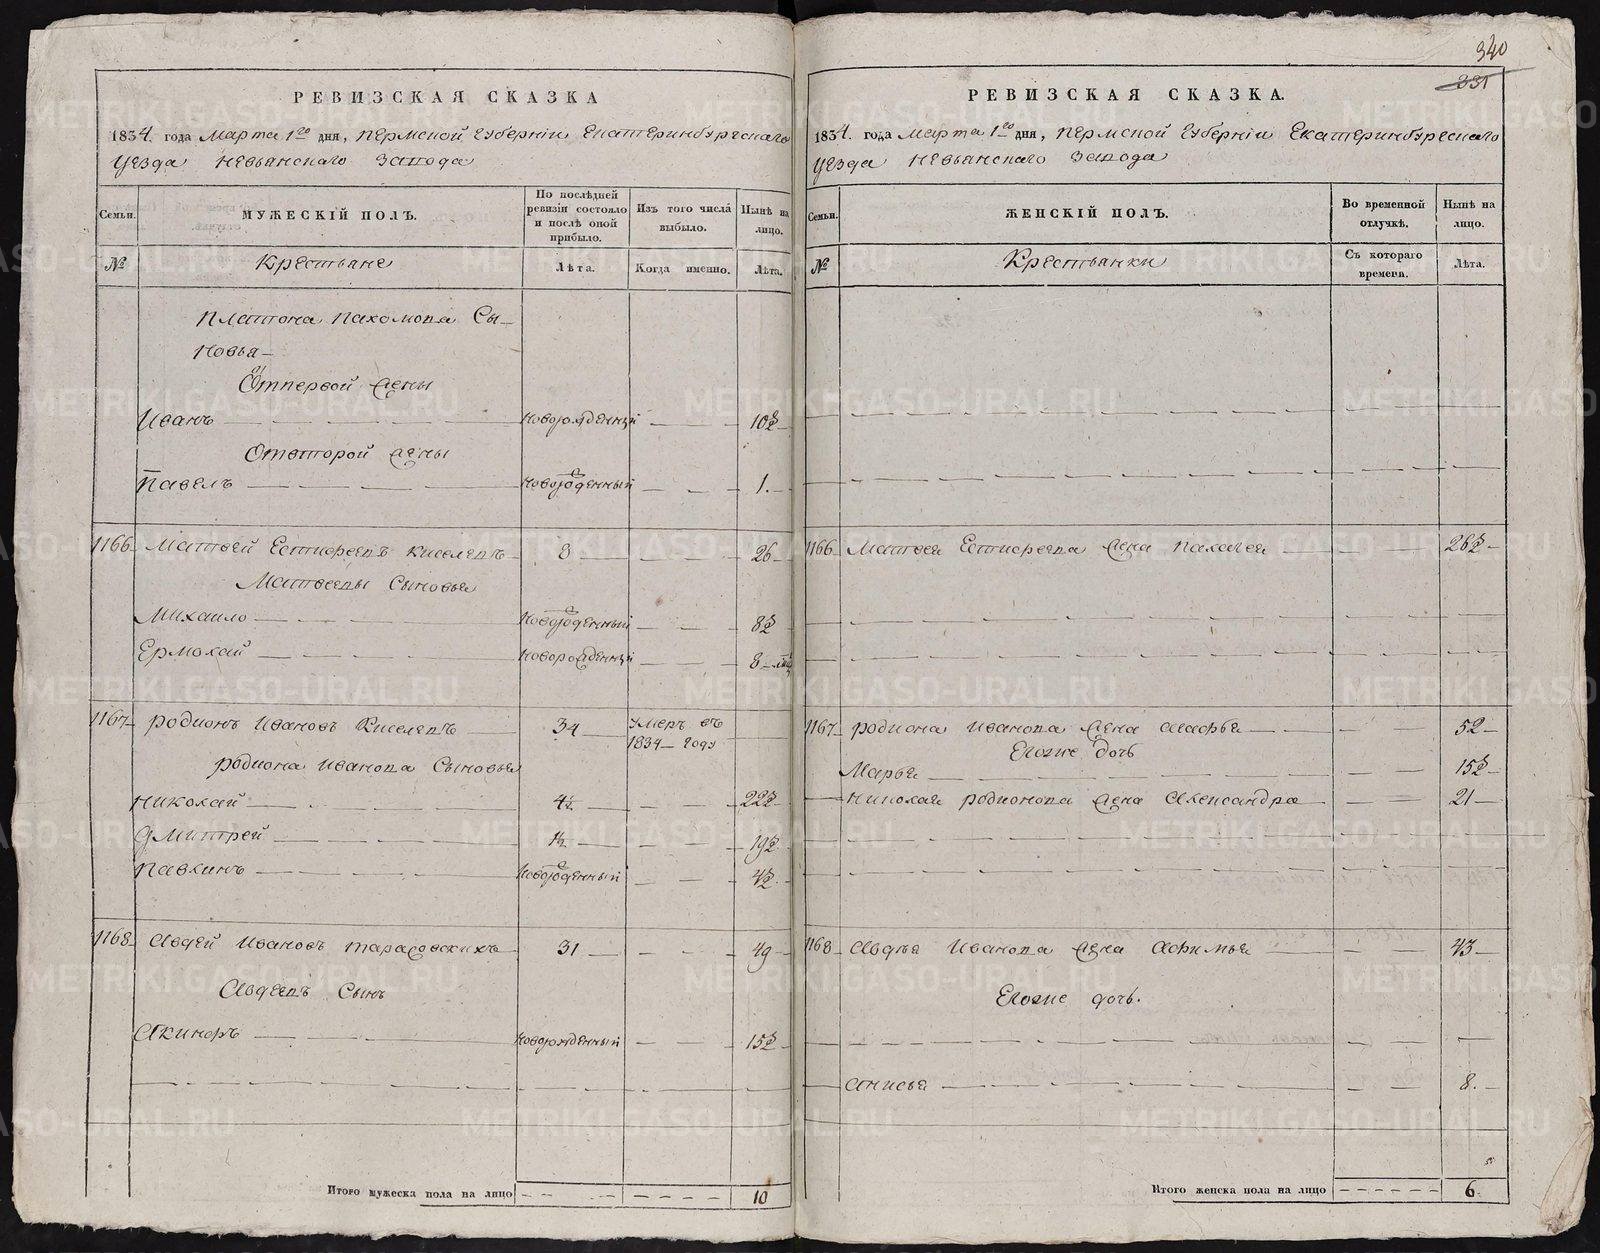 340
331
РЕВИЗСКАЯ СКАЗКА
1834. года Марта 1го дня, Пермской Губерніи Екатеринбургскаго
Уезда Невьянскаго Завода
Семьи. МУЖЕСКІЙ ПОЛЪ. По послѣдней ревизіи состояло и послѣ оной прибыло. Изъ того числа выбыло. Нынѣ на лицо.
№ Крестьяне Лѣта. Когда именно. Лѣта.
Платона Пахомова Сы-
новья
От первой жены
Иванъ Новорожденный 10½
От второй жены
Павелъ Новорожденный 1.
1166 Матвей Естифеевъ Киселевъ 8 26
Матвеевы Сыновья
Михаило Новорожденный 8½
Ермолай Новорожденный 8
1167 Родионъ Ивановъ Киселевъ 34 Умеръ въ
1834 году
Родиона Иванова Сыновья
Николай 4½ 22½
Дмитрей 1½ 19½
Павлинъ Новорожденный 4½
1168 Авдей Ивановъ Тарасовскихъ 31 49
Авдеевъ Сынъ
Акинфъ Новорожденный 15½
Итого мужеска пола на лицо 10
РЕВИЗСКАЯ СКАЗКА.
1834. года Марта 1го дня, Пермской Губерніи Екатеринбургскаго
Уезда Невьянскаго Завода
Семьи. ЖЕНСКІЙ ПОЛЪ. Во временной отлучкѣ. Нынѣ на лицо.
№ Крестьянки Съ котораго времени. Лѣта.
1166 Матвея Естифеева жена Палагея 26½
1167 Родиона Иванова жена Агафья 52
Егоже дочь
Марья 15½
Николая Родионова жена Александра 21
1168 Авдѣя Иванова жена Афимья 43
Егоже дочь.
Анисья 8.
Итого женска пола на лицо 6.